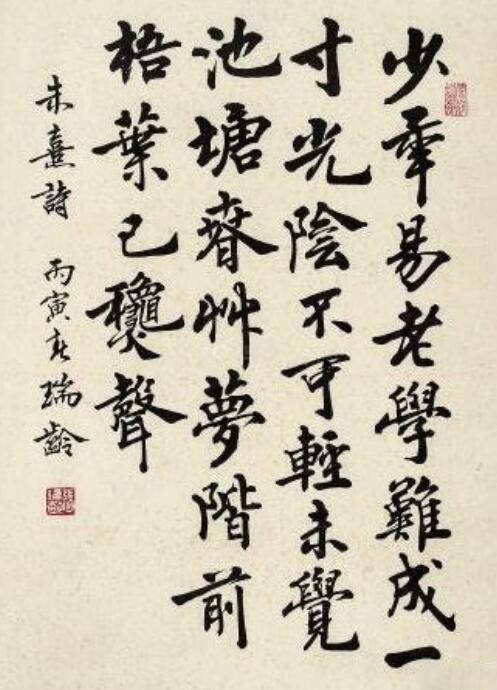 少年易老學難成一
寸光陰不可輕未覺
池塘春艸夢階前
梧葉已龝聲
朱熹詩 丙寅春 瑞齡